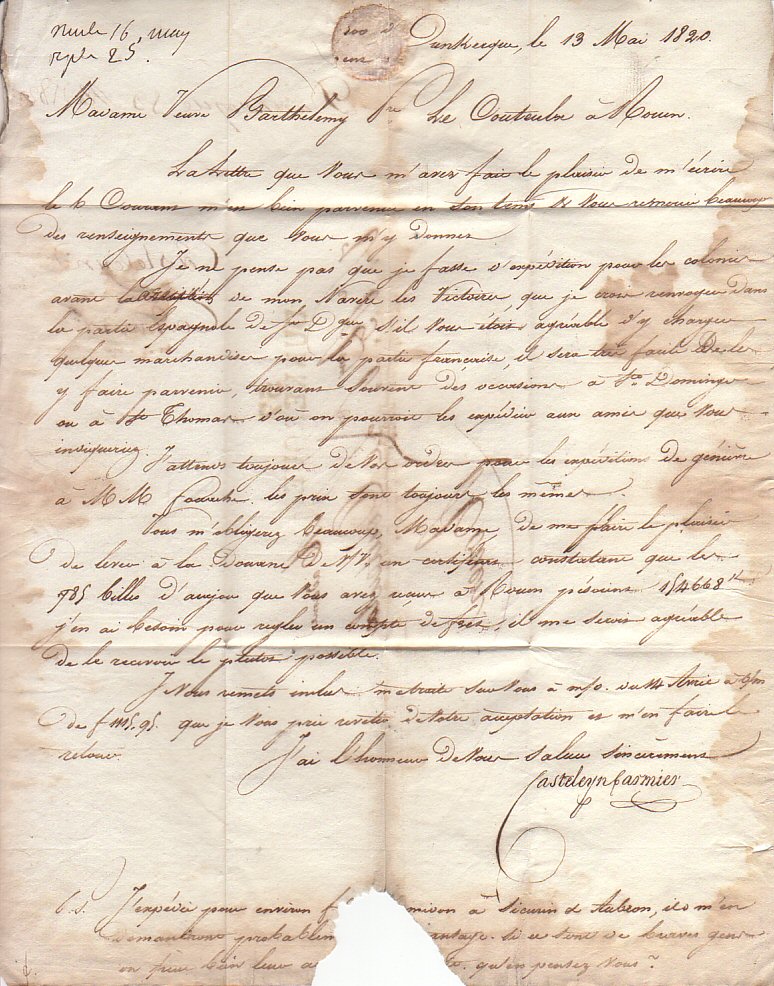 16 may
25.
Dunkerque, le 13 Mai 1820.
Madame Veuve Barthelemy Le Couteulx à Rouen.
La lettre que Vous m'avez fait le plaisir de m'écrire
le 6 Courant m'est bien parvenue en son tems & Vous remercie beaucoup
des renseignements que Vous m'y donnez
Je ne pense pas que je fasse d'expédition pour les colonies
avant de mon Navire les Victoires, que je crois renvoyer dans
la partie Espagnole de St Dgue S'il Vous étoit agréable d'y charger
quelques marchandises pour la partie francaise, il sera très facile de les
y faire parvenir, trouvant souvent des occasions à Sto Domingo
ou à St Thomas d'où on pourroit les expédier aux amis que Vous
indiqueriez. J'attens toujours de Vos ordres pour les expéditions de genièvre
à MM les prix sont toujours les mêmes.
Vous m'obligerez beaucoup, Madame de me faire le plaisir
de lever à la Douane de un certificat constatant que les
785 billes d'acajou que Vous avez reçues à Rouen pésoient 154668
j'en ai besoin pour regler un compte de fret, il me seroit agréable
de le recevoir le plutot possible.
Vous remets inclus ma traite sur Vous à m/o. du 14 Avril à
de f 1115.95. que je Vous prie revetir de Votre acceptation et m'en faire
retour. J'ai l'honneur de Vous saluer sincèrement
Casteleyn Carmier
P.S. J'expédie pour environ f à & Aubron, ils m'en
demanderont davantage. Si ce sont de braves gens
on peut bien leur qu'en pensez Vous?